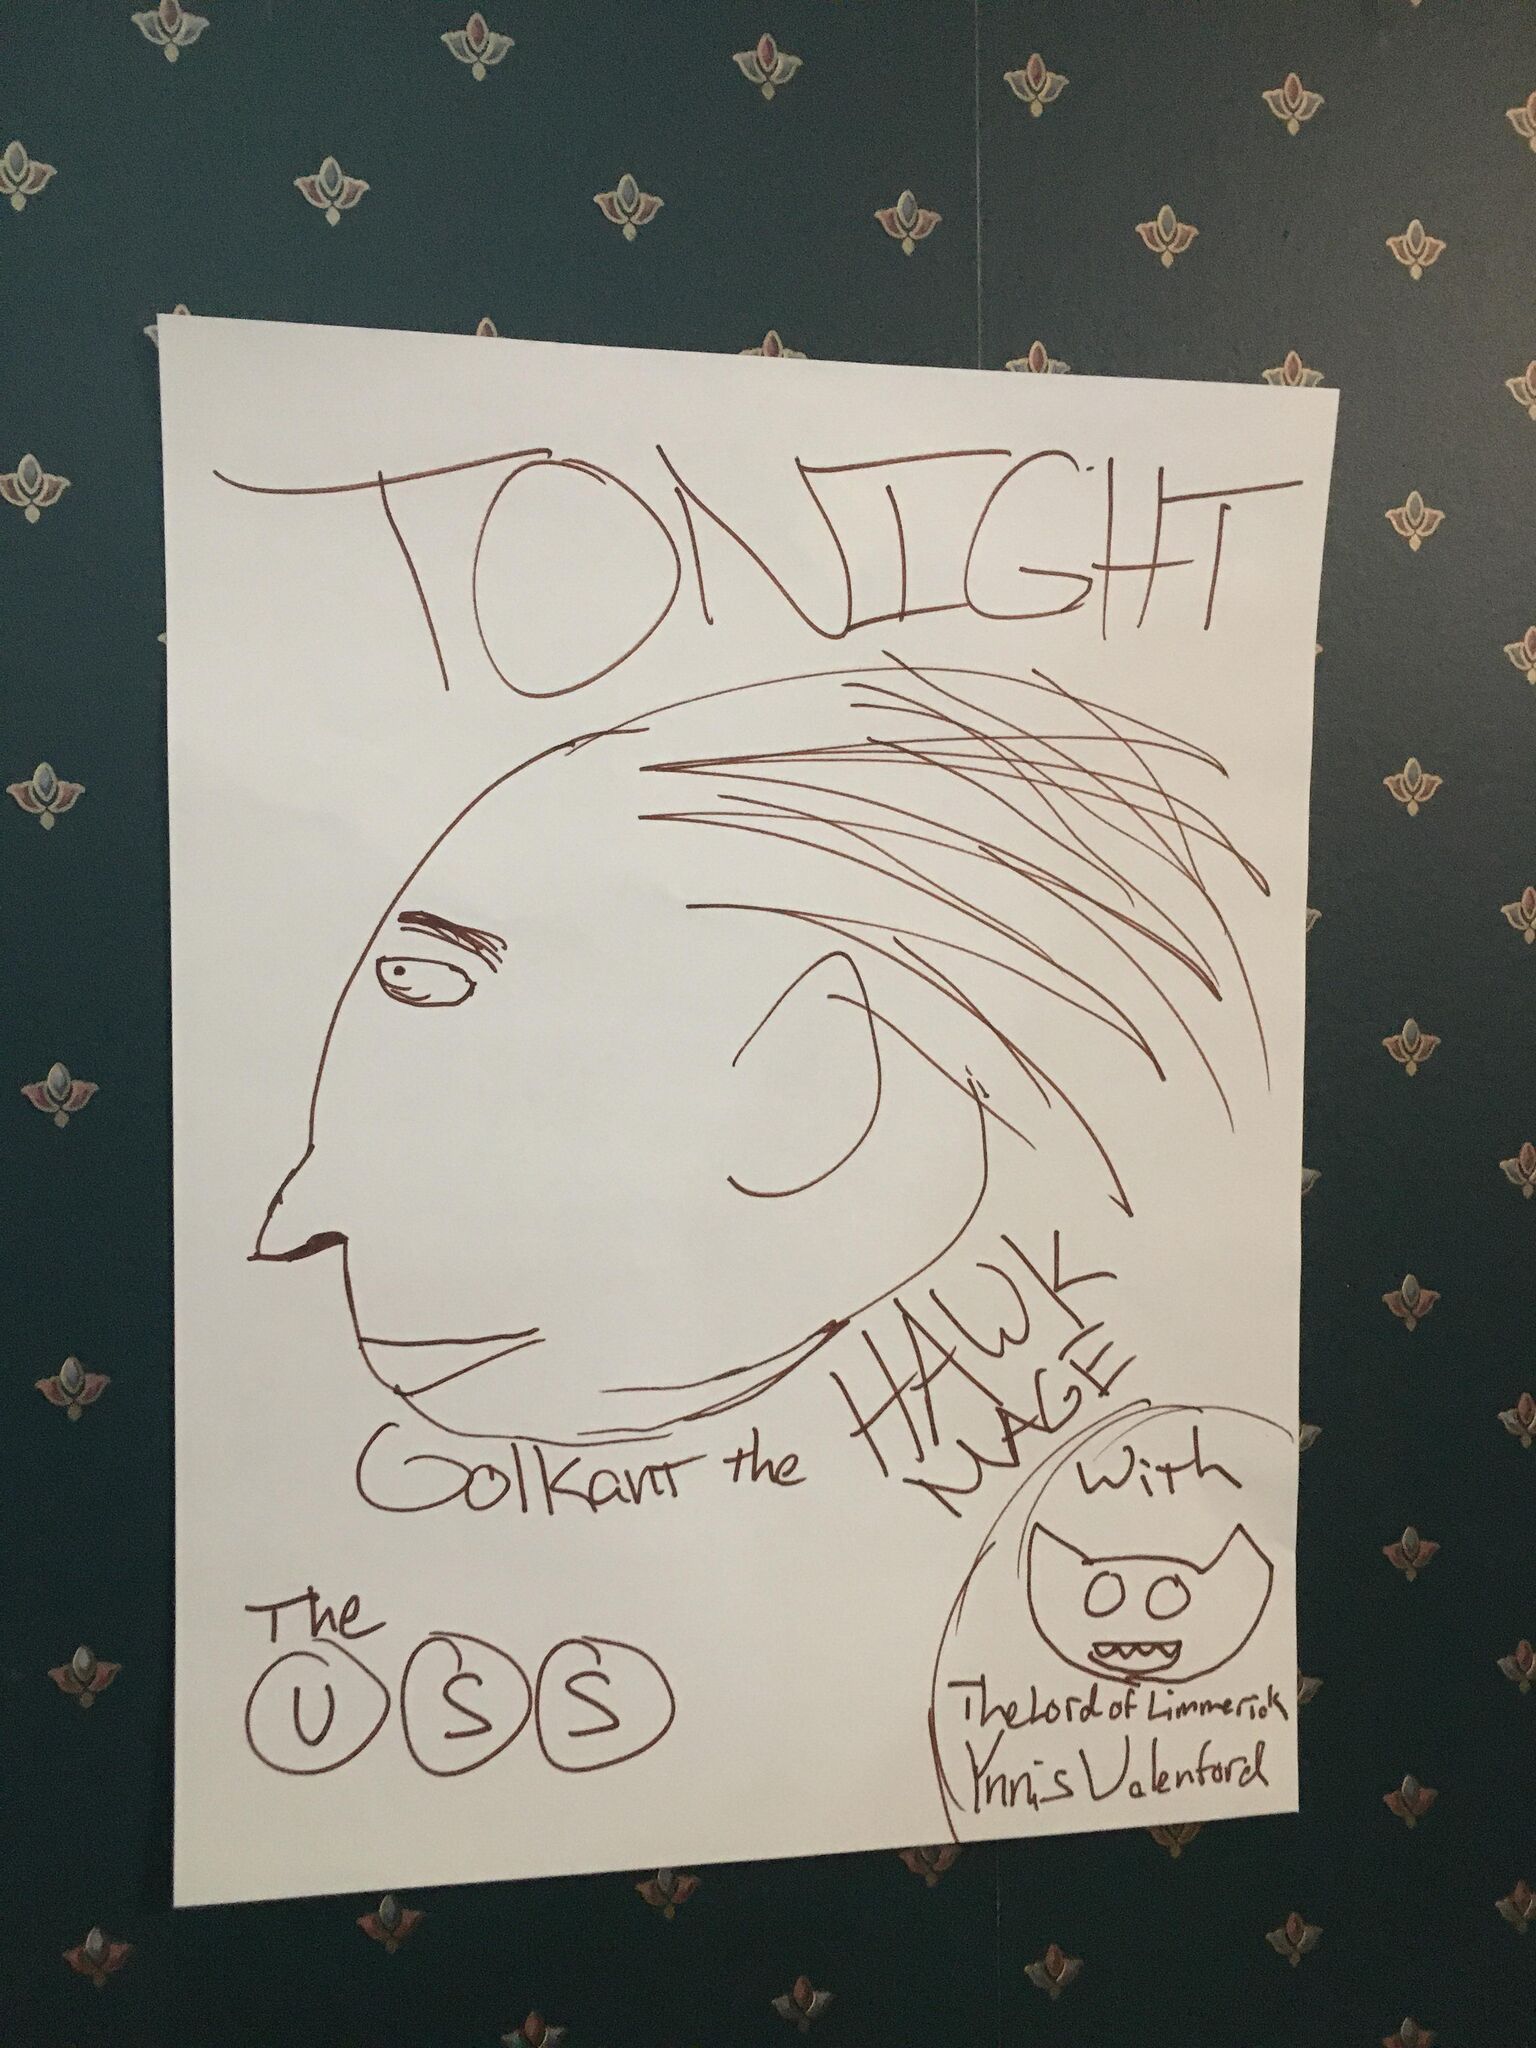 TONIGHT
Golkant the HAWK
MAGE
with
The
U S S
The Lord of Limmerick
Ynnis Valenford